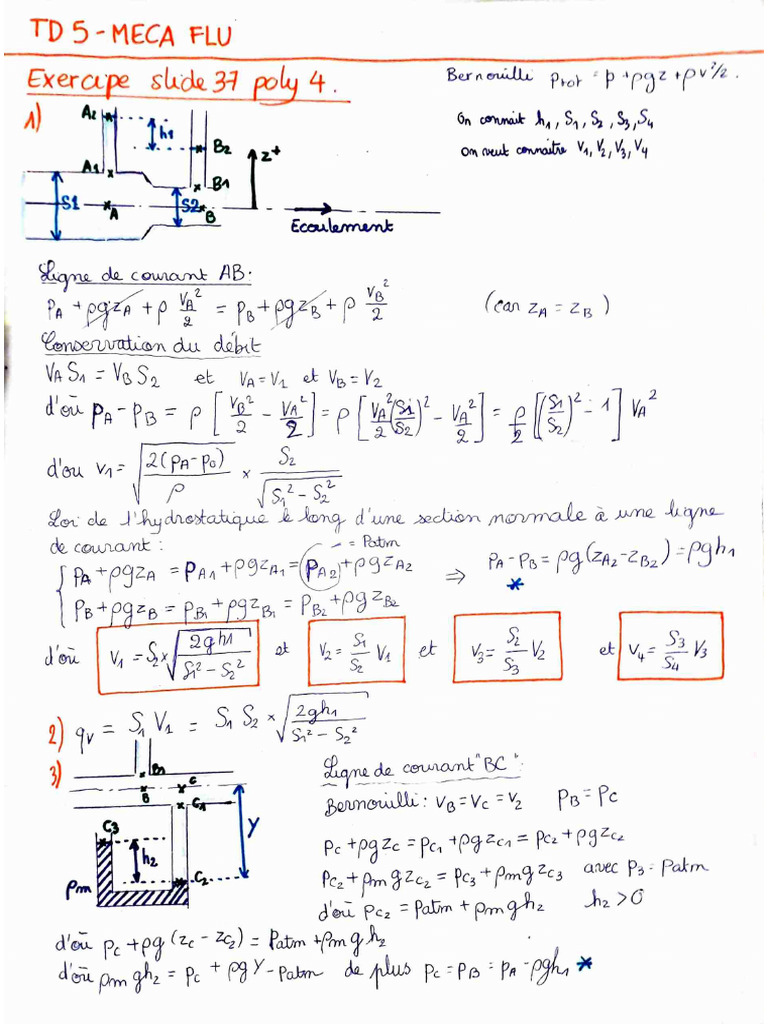 TD 5 - MECA FLU
Exercipe slide 37 poly 4.
Bernouilli Ptot = p + ρgz + ρv²/2.
On connait h1, S1, S2, S3, S4
On veut connaitre V1, V2, V3, V4
1)
A2
h1
B2
z+
A1
B1
S1
A
S2
B
Ecoulement
Ligne de courant AB:
PA + ρgzA + ρ VA²/2 = PB + ρgzB + ρ VB²/2 (car zA = zB)
Conservation du débit
VA S1 = VB S2 et VA = V1 et VB = V2
d'où PA - PB = ρ [VB²/2 - VA²/2] = ρ [VA²/2 (S1/S2)² - VA²/2] = ρ/2 [(S1/S2)² - 1] VA²
d'où V1 = √(2(PA - P0)/ρ) × S2/√(S1² - S2²)
Loi de l'hydrostatique le long d'une section normale à une ligne
de courant :
= Patm
{ PA + ρgzA = PA1 + ρgzA1 = PA2 + ρgzA2
PB + ρgzB = PB1 + ρgzB1 = PB2 + ρgzB2
⇒ PA - PB = ρg(zA2 - zB2) = ρgh1
*
d'où V1 = S2 × √(2gh1/(S1² - S2²)) et V2 = S1/S2 V1 et V3 = S2/S3 V2 et V4 = S3/S4 V3
2) qv = S1 V1 = S1 S2 × √(2gh1/(S1² - S2²))
3)
B1
B
C
C1
C3
h2
C2
Y
ρm
Ligne de courant "BC" :
Bernouilli : VB = VC = V2 PB = PC
PC + ρgzC = PC1 + ρgzC1 = PC2 + ρgzC2
PC2 + ρm gzC2 = PC3 + ρm gzC3 avec P3 = Patm
d'où PC2 = Patm + ρm gh2 h2 > 0
d'où PC + ρg (zC - zC2) = Patm + ρm g h2
d'où ρm gh2 = PC + ρg Y - Patm de plus PC = PB = PA - ρgh1 *